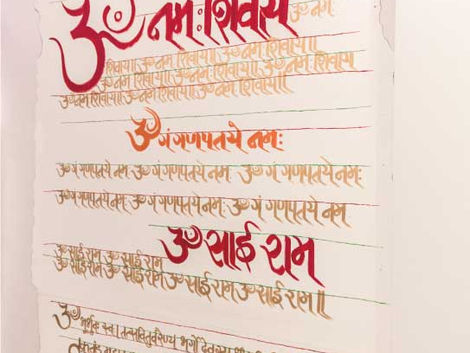 ॐ नमः शिवाय ॐ नमः
शिवाय॥ ॐ नमः शिवाय॥ ॐ नमः शिवाय॥
ॐ नमः शिवाय॥ ॐ नमः शिवाय॥ ॐ नमः शिवाय
ॐ नमः शिवाय॥ ॐ नमः शिवाय॥ ॐ नमः शिवाय॥
ॐ गं गणपतये नमः
ॐ गं गणपतये नमः ॐ गं गणपतये नमः ॐ गं गणपतये नमः
ॐ गं गणपतये नमः ॐ गं गणपतये नमः ॐ गं गणपतये नमः
ॐ साई राम
ॐ साई राम ॐ साई राम
ॐ साई राम ॐ साई राम ॐ साई राम ॐ साई राम॥
ॐ भूर्भुवः स्वः। तत्सवितुर्वरेण्यं भर्गो देवस्य